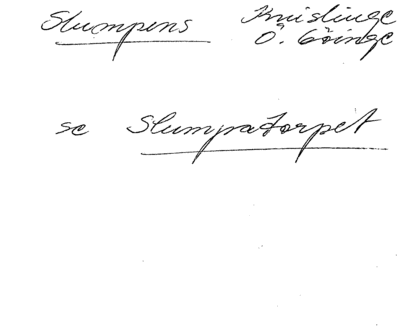 Slumpens Knislinge
Ö. Göinge
se Slumpatorpet